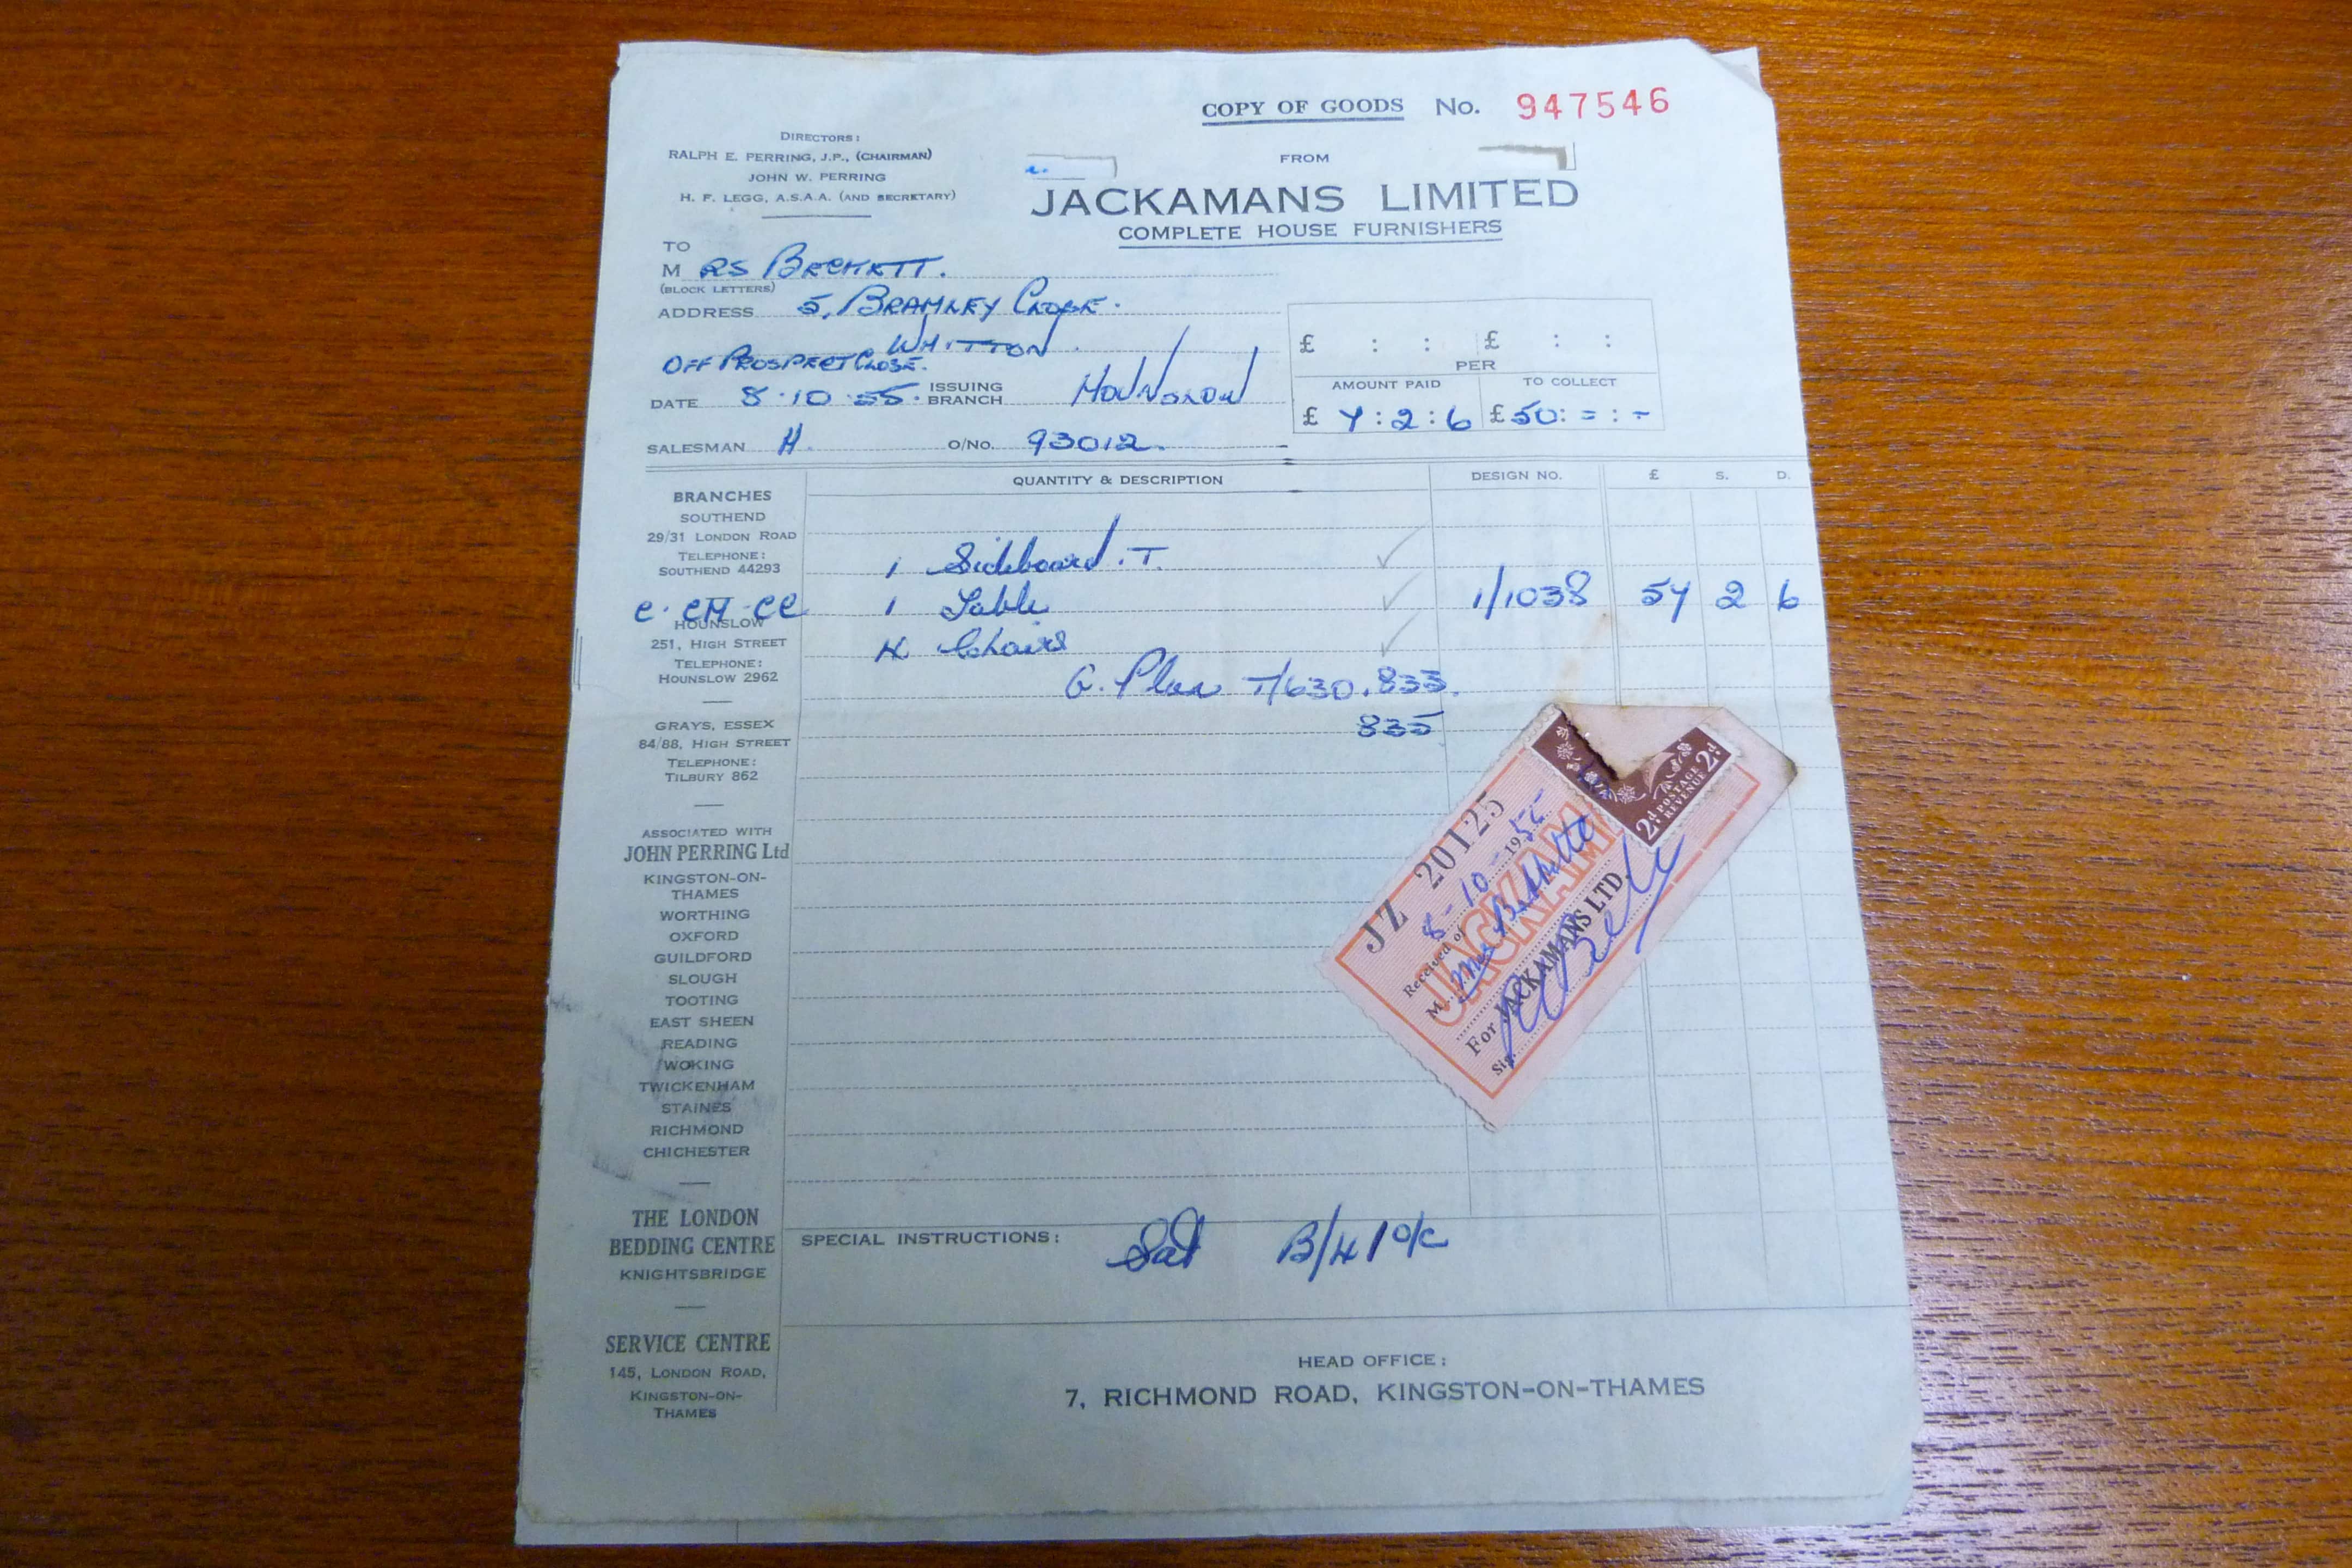 COPY OF GOODS No. 947546
DIRECTORS:
RALPH E. PERRING, J.P., (CHAIRMAN)
JOHN W. PERRING
H. F. LEGG, A.S.A.A. (AND SECRETARY)
FROM
JACKAMANS LIMITED
COMPLETE HOUSE FURNISHERS
TO
M RS BECKETT.
(BLOCK LETTERS)
ADDRESS 5, BRAMLEY CLOSE.
WHITTON.
OFF PROSPECT CLOSE.
DATE 8.10.55. ISSUING BRANCH HOUNSLOW
SALESMAN H. O/No. 93012.
£ : : £ : :
PER
AMOUNT PAID TO COLLECT
£ 4:2:6 £ 50: = : -
QUANTITY & DESCRIPTION DESIGN NO. £ S. D.
1 Sideboard. T.
1 Table 1/1038 54 2 6
4 Chairs
G. Plan T/630.833.
835
BRANCHES
SOUTHEND
29/31 LONDON ROAD
TELEPHONE:
SOUTHEND 44293
HOUNSLOW
251, HIGH STREET
TELEPHONE:
HOUNSLOW 2962
GRAYS, ESSEX
84/88, HIGH STREET
TELEPHONE:
TILBURY 862
ASSOCIATED WITH
JOHN PERRING Ltd
KINGSTON-ON-
THAMES
WORTHING
OXFORD
GUILDFORD
SLOUGH
TOOTING
EAST SHEEN
READING
WOKING
TWICKENHAM
STAINES
RICHMOND
CHICHESTER
THE LONDON
BEDDING CENTRE
KNIGHTSBRIDGE
SERVICE CENTRE
145, LONDON ROAD,
KINGSTON-ON-
THAMES
JZ 20125
8-10-1955
Received of
M Mrs
JACKAMANS
For JACKAMANS LTD.
Sig.
2d. POSTAGE REVENUE 2d.
SPECIAL INSTRUCTIONS: Sat B/4 1 o/c
HEAD OFFICE:
7, RICHMOND ROAD, KINGSTON-ON-THAMES